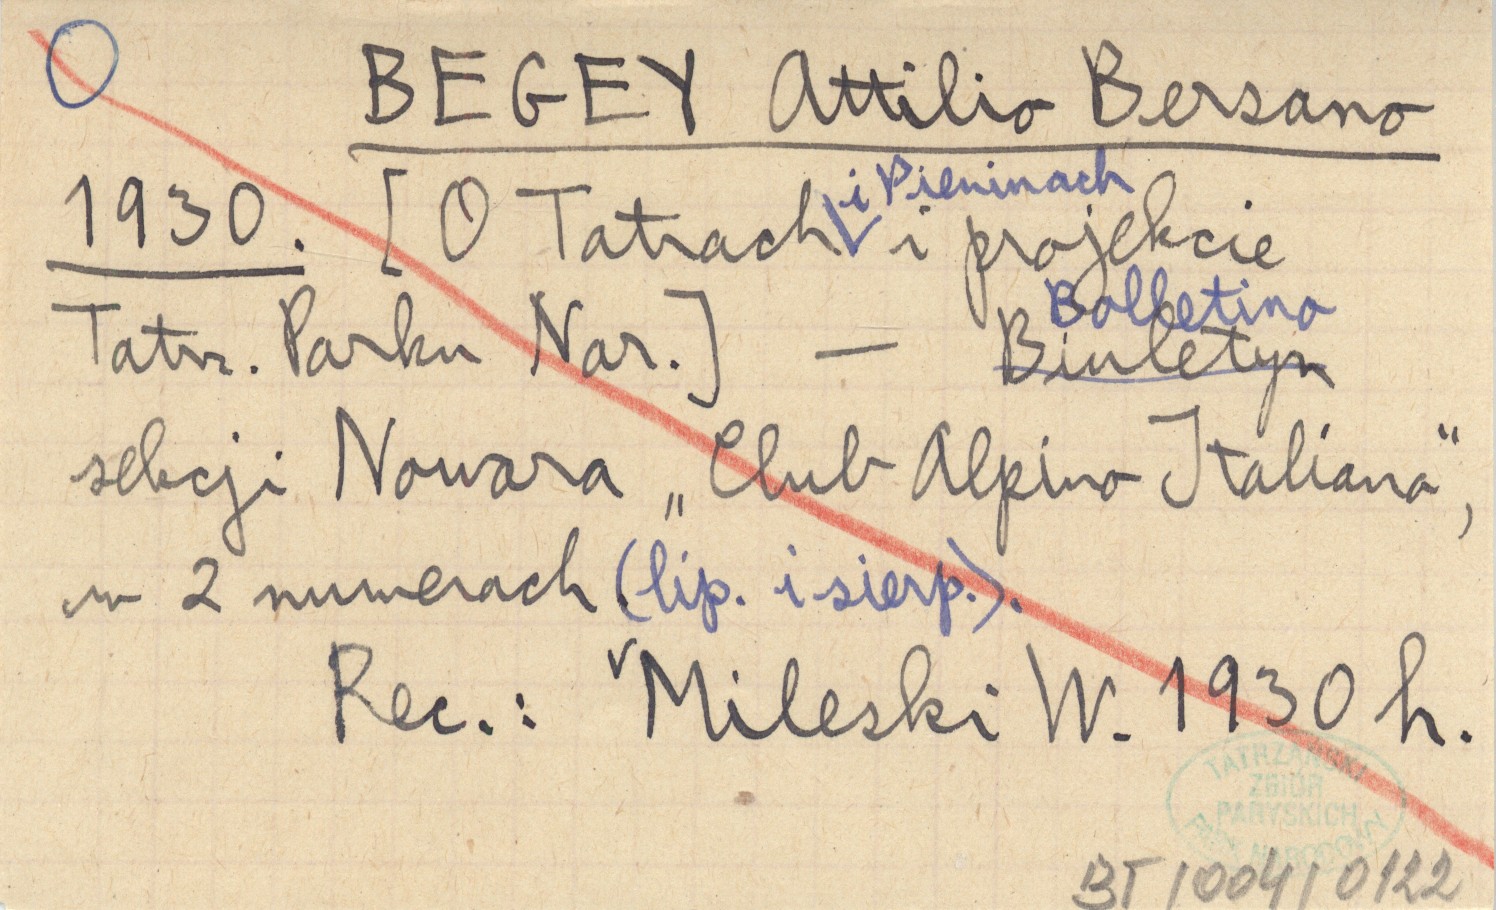 BEGEY Attilio Bersano
1930. [O Tatrach i Pieninach i projekcie
Tatrz. Parku Nar.] — Bolletino Biuletyn
sekcji Nowara „Club Alpino Italiana”,
w 2 numerach (lip. i sierp.).
Rec.: Mileski W. 1930 h.
TATRZAŃSKI
ZBIÓR
PARYSKICH
PARK NARODOWY
BT/004/0122